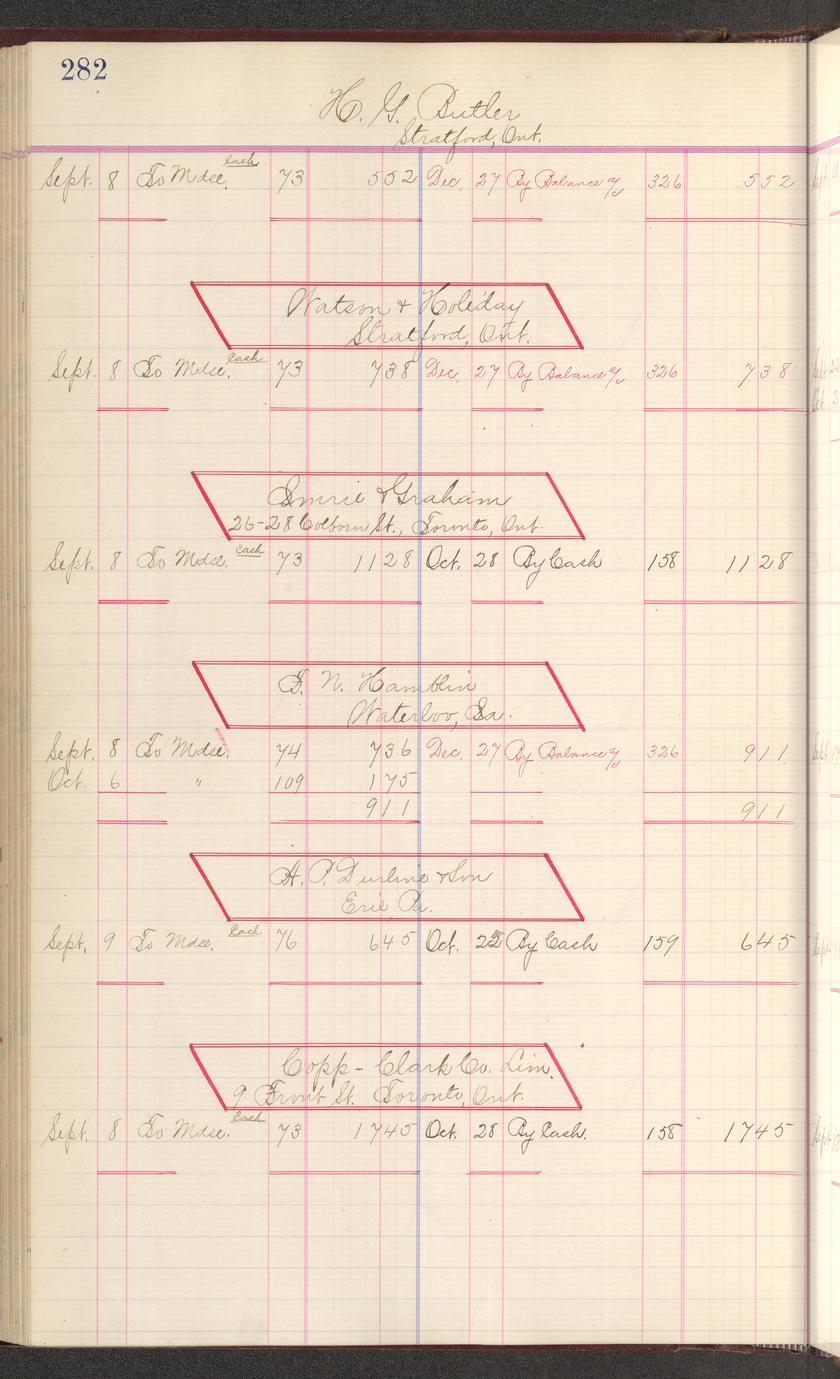 282
H. G. Butler
Stratford, Ont.
Sept. 8 To Mdse. Cash 73 552 Dec. 27 By Balance a/c 326 552
Watson & Holiday
Stratford, Ont.
Sept. 8 To Mdse. Cash 73 738 Dec. 27 By Balance a/c 326 738
Imrie & Graham
26-28 Colborn St., Toronto, Ont.
Sept. 8 To Mdse. Cash 73 1128 Oct. 28 By Cash 158 1128
N. Hamblin
Waterloo, Ia.
Sept. 8 To Mdse. 74 736 Dec. 27 By Balance a/c 326 911
Oct. 6 " 109 175
911 911
A. P. & Son
Erie, Pa.
Sept. 9 To Mdse. Cash 76 645 Oct. By Cash 159 645
Copp-Clark Co. Lim.
9 Front St. Toronto, Ont.
Sept. 8 To Mdse. Cash 73 1745 Oct. 28 By Cash. 158 1745